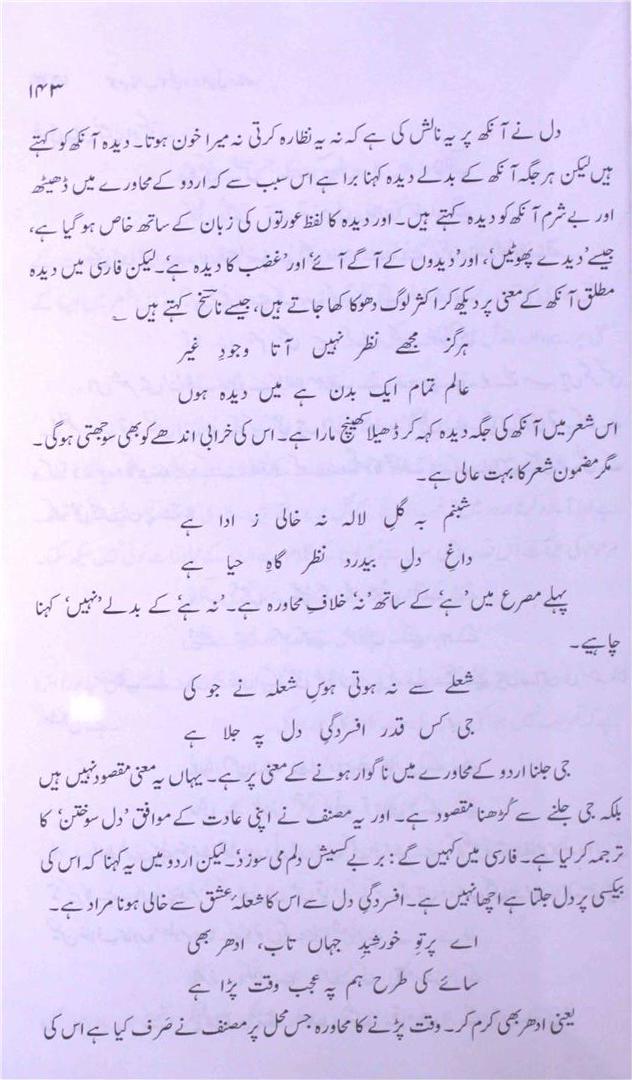 ۱۴۳
دل نے آنکھ پر یہ نالش کی ہے کہ نہ یہ نظارہ کرتی نہ میرا خون ہوتا۔ دیدہ آنکھ کو کہتے
ہیں لیکن ہر جگہ آنکھ کے بدلے دیدہ کہنا برا ہے اس سبب سے کہ اردو کے محاورے میں ڈھیٹھ
اور بے شرم آنکھ کو دیدہ کہتے ہیں۔ اور دیدہ کا لفظ عورتوں کی زبان کے ساتھ خاص ہو گیا ہے،
جیسے ’دیدے پھوٹیں‘، اور ’دیدوں کے آگے آئے‘ اور ’غضب کا دیدہ ہے‘۔ لیکن فارسی میں دیدہ
مطلق آنکھ کے معنی پر دیکھ کر اکثر لوگ دھوکا کھا جاتے ہیں، جیسے ناسخ کہتے ہیں ؎
ہرگز مجھے نظر نہیں آتا وجودِ غیر
عالم تمام ایک بدن ہے میں دیدہ ہوں
اس شعر میں آنکھ کی جگہ دیدہ کہہ کر ڈھیلا کھینچ مارا ہے۔ اس کی خرابی اندھے کو بھی سوجھتی ہوگی۔
مگر مضمون شعر کا بہت عالی ہے۔
شبنم بہ گلِ لالہ نہ خالی ز ادا ہے
داغِ دلِ بیدرد نظر گاہِ حیا ہے
پہلے مصرع میں ’ہے‘ کے ساتھ ’نہ‘ خلافِ محاورہ ہے۔ ’نہ ہے‘ کے بدلے ’نہیں‘ کہنا
چاہیے۔
شعلے سے نہ ہوتی ہوسِ شعلہ نے جو کی
جی کس قدر افسردگیِ دل پہ جلا ہے
جی جلنا اردو کے محاورے میں ناگوار ہونے کے معنی پر ہے۔ یہاں یہ معنی مقصود نہیں ہیں
بلکہ جی جلنے سے کُڑھنا مقصود ہے۔ اور یہ مصنف نے اپنی عادت کے موافق ’دل سوختن‘ کا
ترجمہ کر لیا ہے۔ فارسی میں کہیں گے: بر بے کسیش دلم می سوزد۔ لیکن اردو میں یہ کہنا کہ اس کی
بیکسی پر دل جلتا ہے اچھا نہیں ہے۔ افسردگیِ دل سے اس کا شعلۂ عشق سے خالی ہونا مراد ہے۔
اے پرتوِ خورشیدِ جہاں تاب، ادھر بھی
سائے کی طرح ہم پہ عجب وقت پڑا ہے
یعنی ادھر بھی کرم کر۔ وقت پڑنے کا محاورہ جس محل پر مصنف نے صَرف کیا ہے اس کی